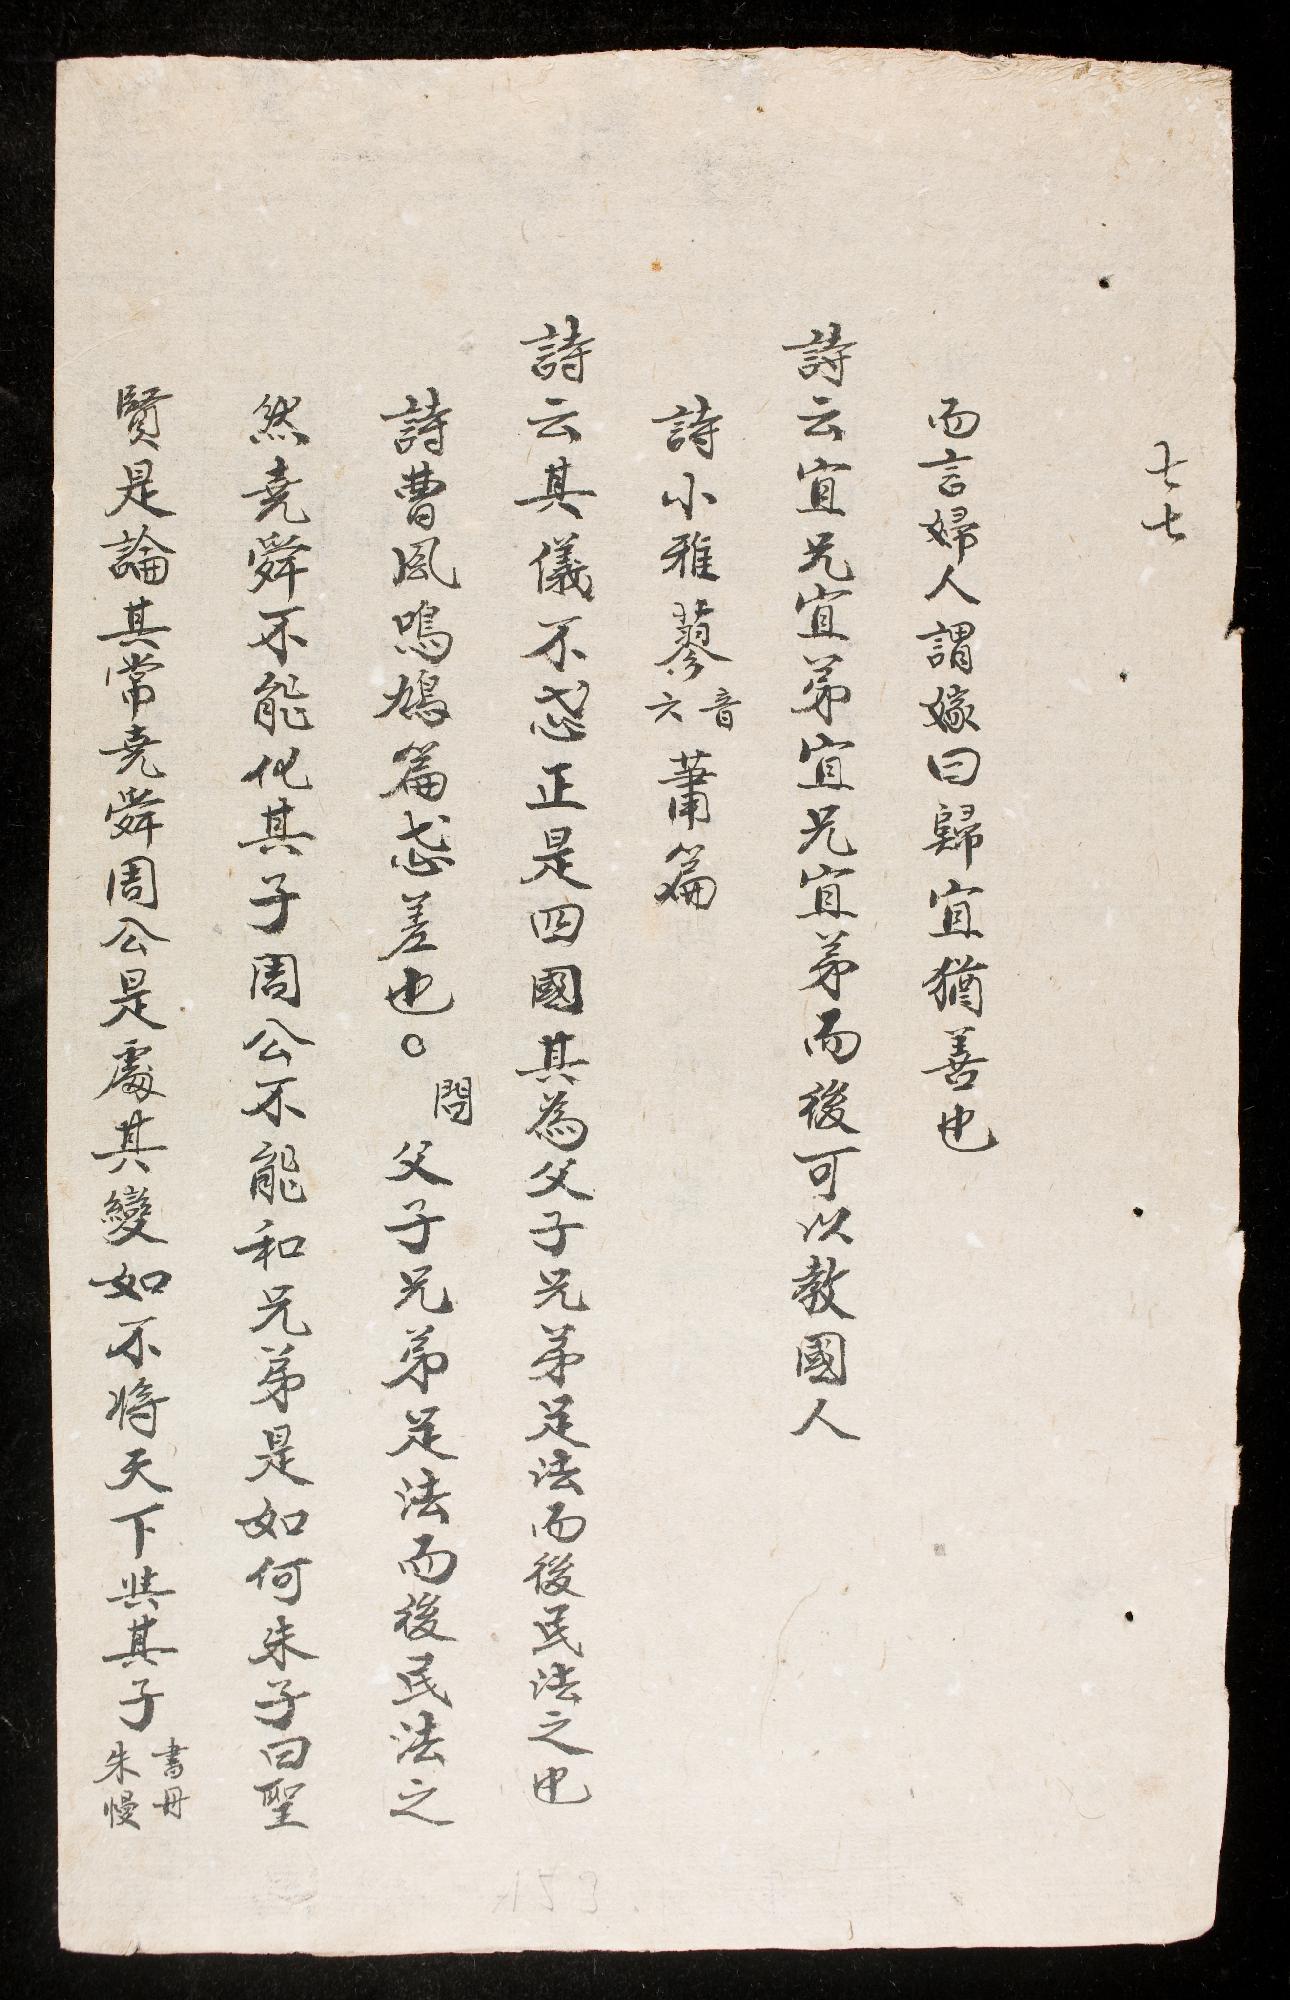 七七
而言婦人謂嫁曰歸宜猶善也
詩云宜兄宜弟宜兄宜弟而後可以教國人
詩小雅蓼音六蕭篇
詩云其儀不忒正是四國其為父子兄弟足法而後民法之也
詩曹風鳴鳩篇忒差也○問父子兄弟足法而後民法之
然堯舜不能化其子周公不能和兄弟是如何朱子曰聖
賢是論其常堯舜周公是處其變如不將天下與其子
書丹
朱慢